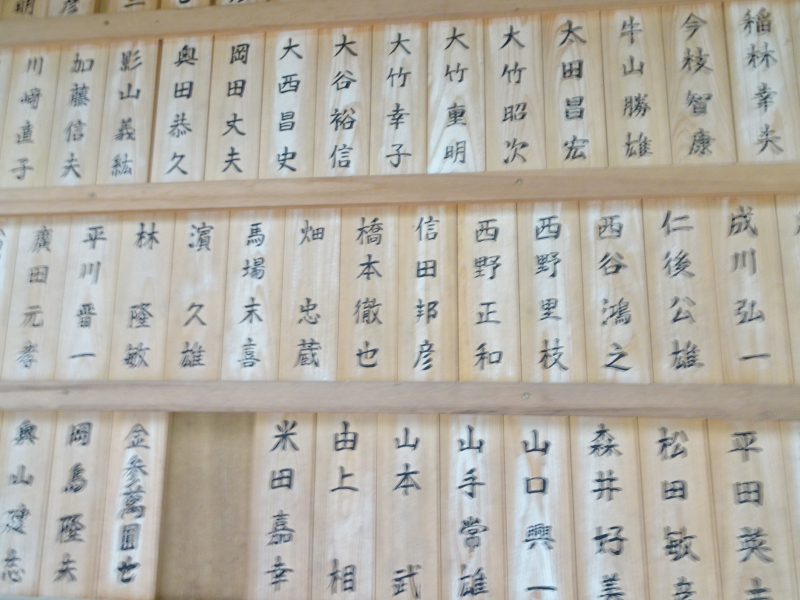 稲林幸夫
今枝智康
牛山勝雄
太田昌宏
大竹昭次
大竹重明
大竹幸子
大谷裕信
大西昌史
岡田丈夫
奥田恭久
影山義紘
加藤信夫
川崎直子
成川弘一
仁後公雄
西谷鴻之
西野里枝
西野正和
信田邦彦
橋本徹也
畑忠蔵
馬場末喜
濱久雄
林隆敏
平川晋一
廣田元孝
平田英
松田敏
森井好美
山口興一
山手常雄
山本武
由上相
米田嘉幸
金参萬圓也
岡島隆夫
奥山建志